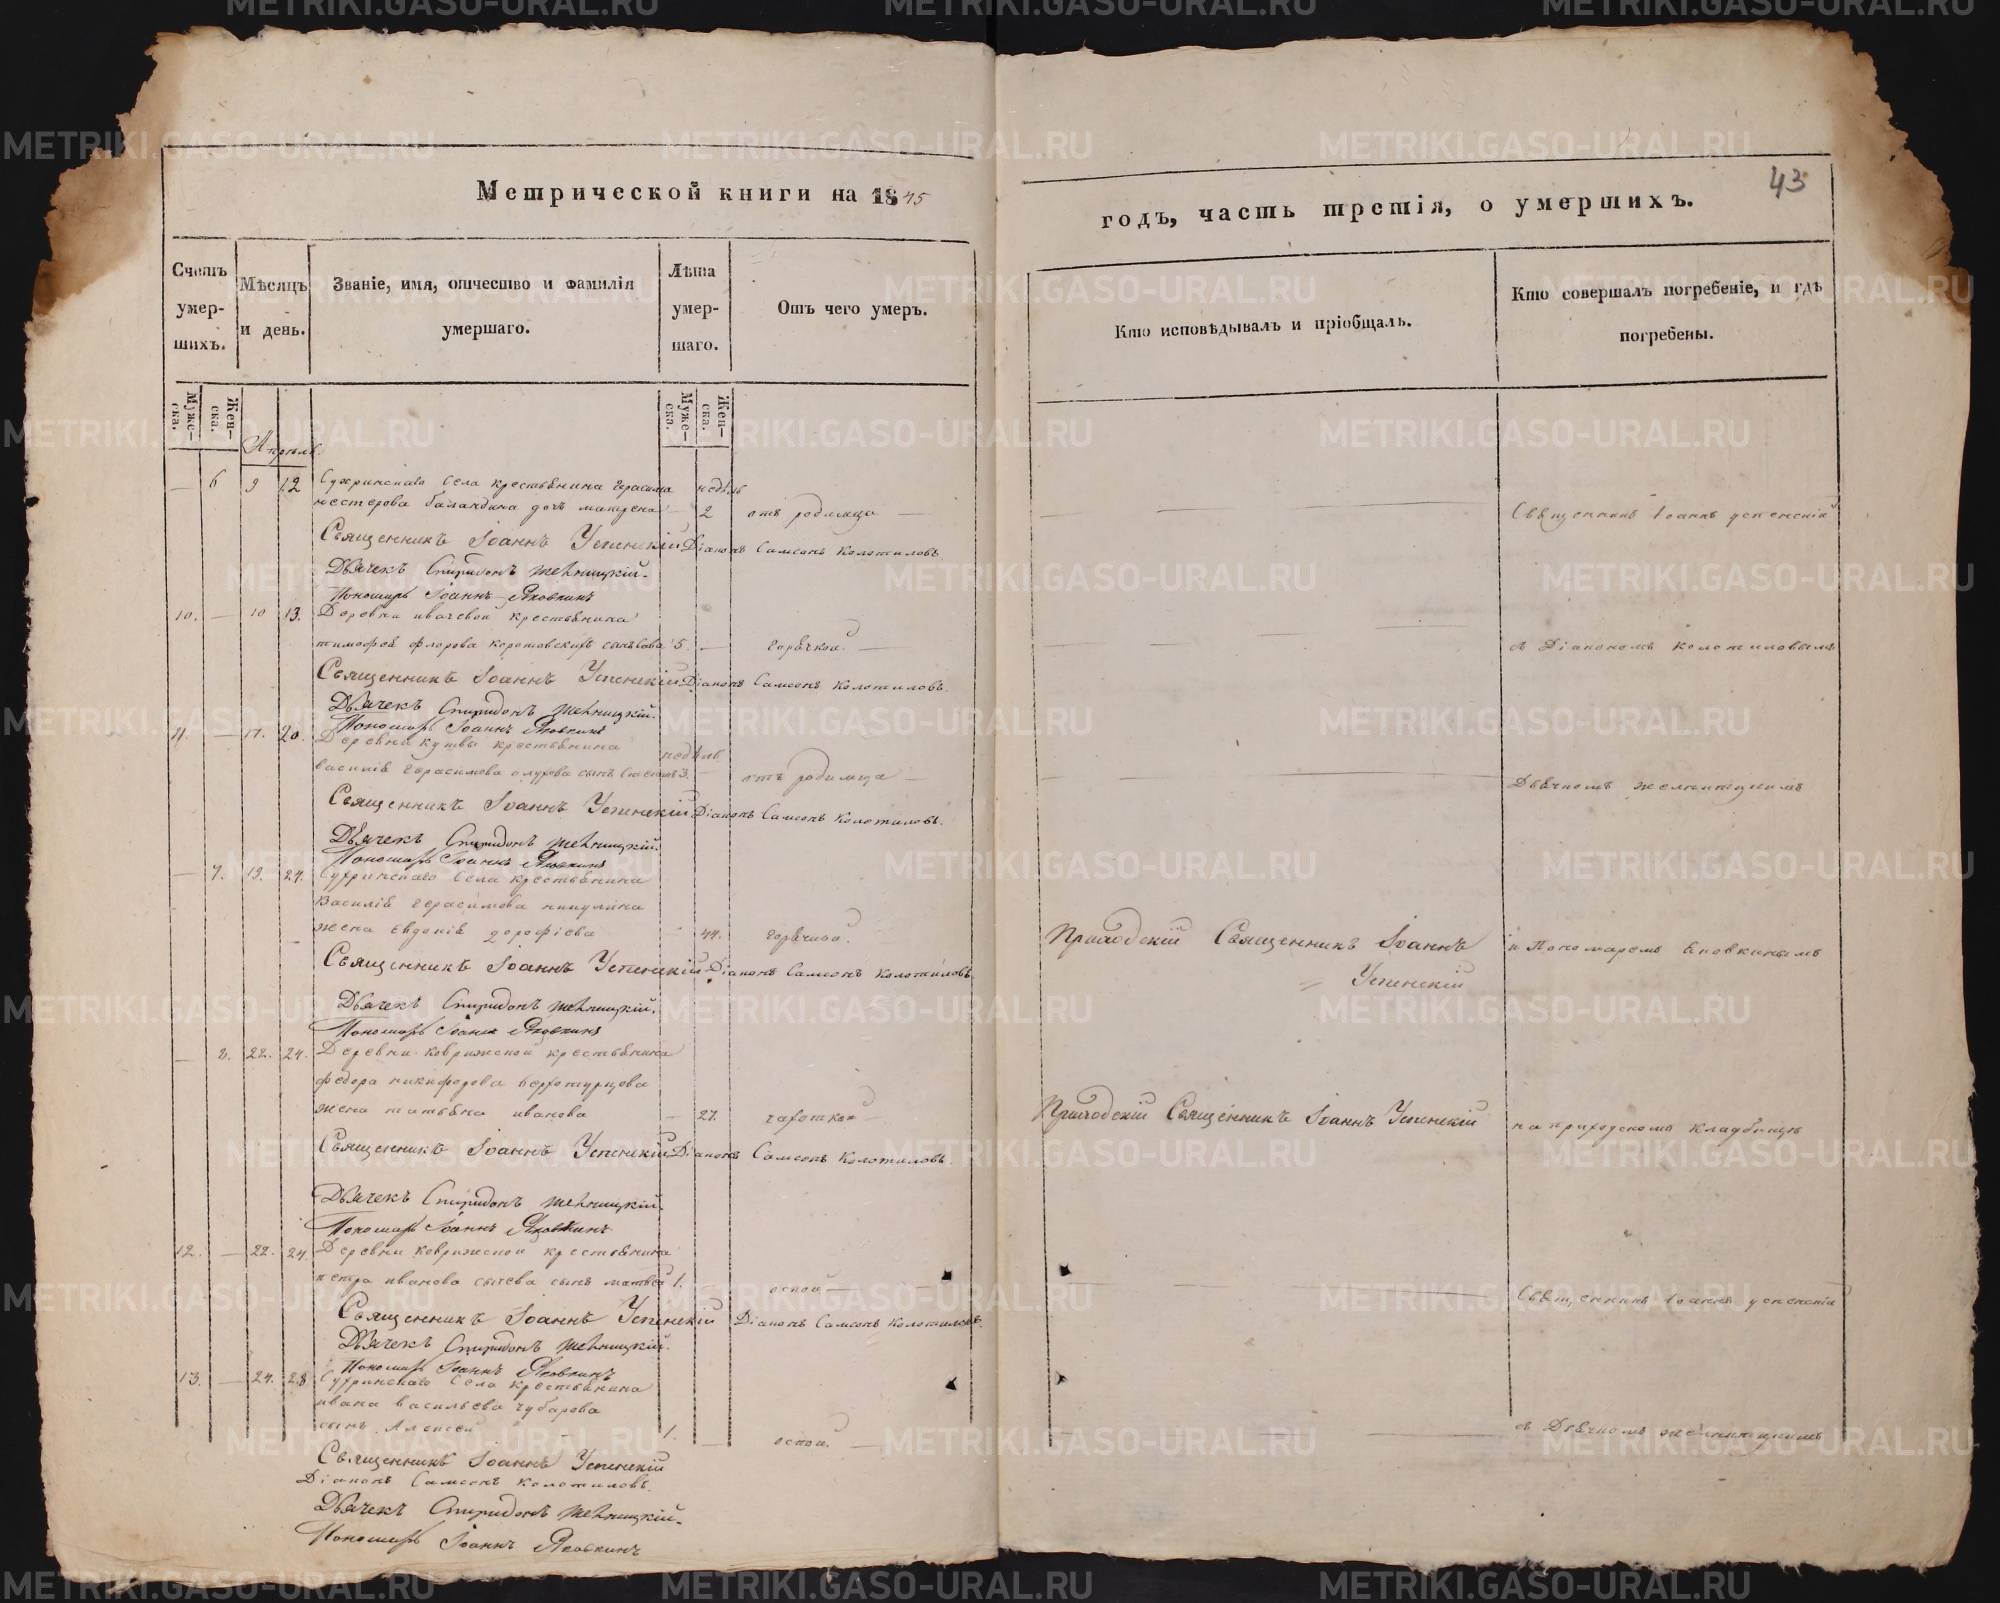 Метрической книги на 1845
годъ, часть третія, о умершихъ.
43
Счетъ умер-шихъ.
Мѣсяцъ и день.
Званіе, имя, отчество и фамилія умершаго.
Лѣта умер-шаго.
Отъ чего умеръ.
Кто исповѣдывалъ и пріобщалъ.
Кто совершалъ погребеніе, и гдѣ погребены.
Муже-ска.
Жен-ска.
Муже-ска.
Жен-ска.
Апрѣль
— 6 9 12 Сухринскаго села крестьянина Герасима недѣль
нестерова баландина дочь матрена — 2 отъ родимца — Священникъ Іоаннъ успенскій
Священникъ Іоаннъ Успенскій Діаконъ Самсонъ Колотиловъ
Дьячекъ Спиридонъ Желницкій.
Пономарь Іоаннъ Яковкинъ
10. — 10 13. Деревни ивачевой крестьянина
тимофея флорова сынъ Савва 5. — горячкой. — съ Діакономъ Колотиловымъ
Священникъ Іоаннъ Успенскій Діаконъ Самсонъ Колотиловъ.
Дьячекъ Спиридонъ Желницкій.
Пономарь Іоаннъ Яковкинъ
11. — 17. 20. Деревни крестьянина недѣль
василія Герасимова сынъ 3. — отъ родимца — Дьячкомъ желницкимъ
Священникъ Іоаннъ Успенскій Діаконъ Самсонъ Колотиловъ.
Дьячекъ Спиридонъ Желницкій.
Пономарь Іоаннъ Яковкинъ
— 7. 19. 24. Сухринскаго села крестьянина
Василія Герасимова никулина
жена Евдокія дорофіева — 44. горячкой. Приходскій Священникъ Іоаннъ Успенскій и Пономаремъ Яковкинымъ
Священникъ Іоаннъ Успенскій Діаконъ Самсонъ Колотиловъ
Дьячекъ Спиридонъ Желницкій.
Пономарь Іоаннъ Яковкинъ
— 8. 22. 24. Деревни коврижской крестьянина
федора никифорова верхотурцова
жена татьяна иванова — 27. чахоткой — Приходскій Священникъ Іоаннъ Успенскій на приходскомъ кладбищѣ
Священникъ Іоаннъ Успенскій Діаконъ Самсонъ Колотиловъ.
Дьячекъ Спиридонъ Желницкій.
Пономарь Іоаннъ Яковкинъ
12. — 22. 24 Деревни коврижской крестьянина
петра иванова сычева сынъ матвей 1. — оспой — Священникъ Іоаннъ успенскій
Священникъ Іоаннъ Успенскій Діаконъ Самсонъ Колотиловъ.
Дьячекъ Спиридонъ Желницкій.
Пономарь Іоаннъ Яковкинъ
13. — 24. 28 Сухринскаго села крестьянина
ивана васильева чубарова
сынъ Алексей 1. — оспой. — съ Дьячкомъ желницкимъ
Священникъ Іоаннъ Успенскій
Діаконъ Самсонъ Колотиловъ.
Дьячекъ Спиридонъ Желницкій.
Пономарь Іоаннъ Яковкинъ
METRIKI.GASO-URAL.RU